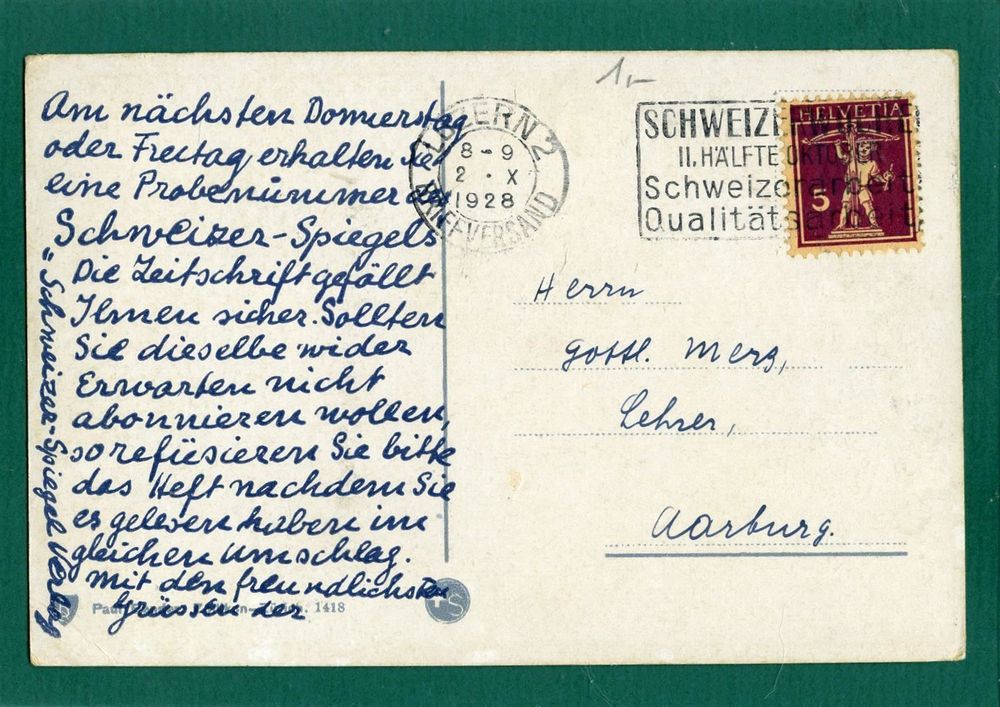 Am nächsten Donnerstag
oder Freitag erhalten Sie
eine Probenummer des
Schweizer-Spiegels
Die Zeitschrift gefällt
Ihnen sicher. Sollten
Sie dieselbe wider
Erwarten nicht
abonnieren wollen,
so refüsieren Sie bitte
das Heft nachdem Sie
es gelesen haben im
gleichen Umschlag.
Mit den freundlichsten
Grüssen der
"Schweizer-Spiegel Verlag
Paul 1418
LUZERN 2
8-9
2 · X
1928
BRIEFVERSAND
1.-
SCHWEIZERWOCHE
II. HÄLFTE OKTOBER
Schweizerarbeit
Qualitätsarbeit
HELVETIA
5
Herrn
Gottl. Merz,
Lehrer,
Aarburg.